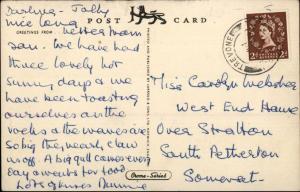 Darling - Jolly
nice long
letter from
POST CARD
GREETINGS FROM
san. We have had
three lovely hot
sunny days & we
have been toasting
ourselves on the
rocks & the waves are
so big they nearly claw
us off. A big gull comes every
day & waits for food
Lots of kisses
TREVONE
2D 2D
Miss Carolyn Webster
West End House
Over Stratton
South Petherton
Somerset
Drome-Series